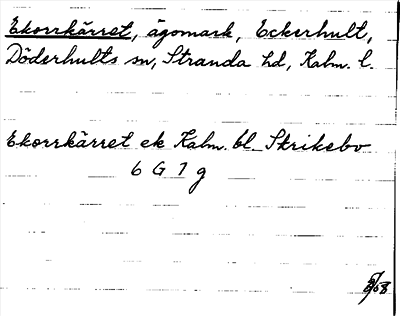 Ekorrkärret, ägomark, Eckerhult,
Döderhults sn, Stranda hd, Kalm. l.
Ekorrkärret ek Kalm. bl. Skrikebo
6 G 7 g